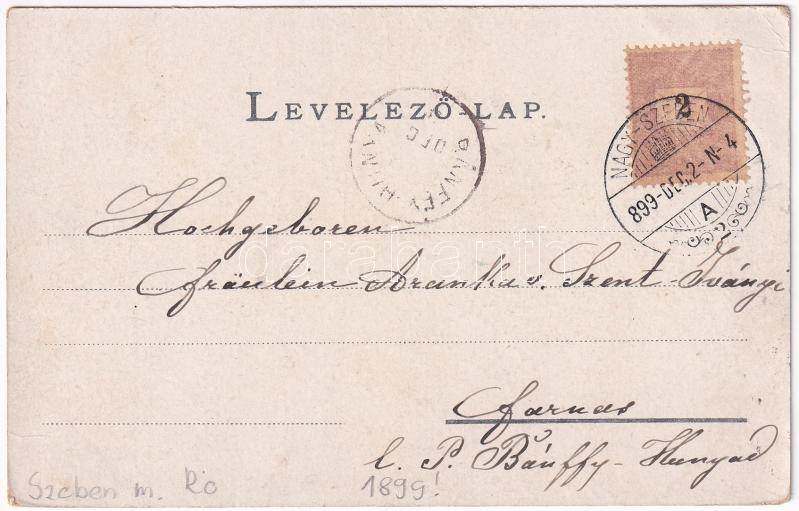 LEVELEZŐ-LAP.
2
NAGY-SZEBEN
899-DEC.2-N-4
A
2
BÁNFFY-HUNYAD
DEC
Hochgeboren
fräulein Aranka v. Szent-Iványi
Farnas
l. P. Bánffy-Hunyad
Szeben m. Ro
1899!
darabanth